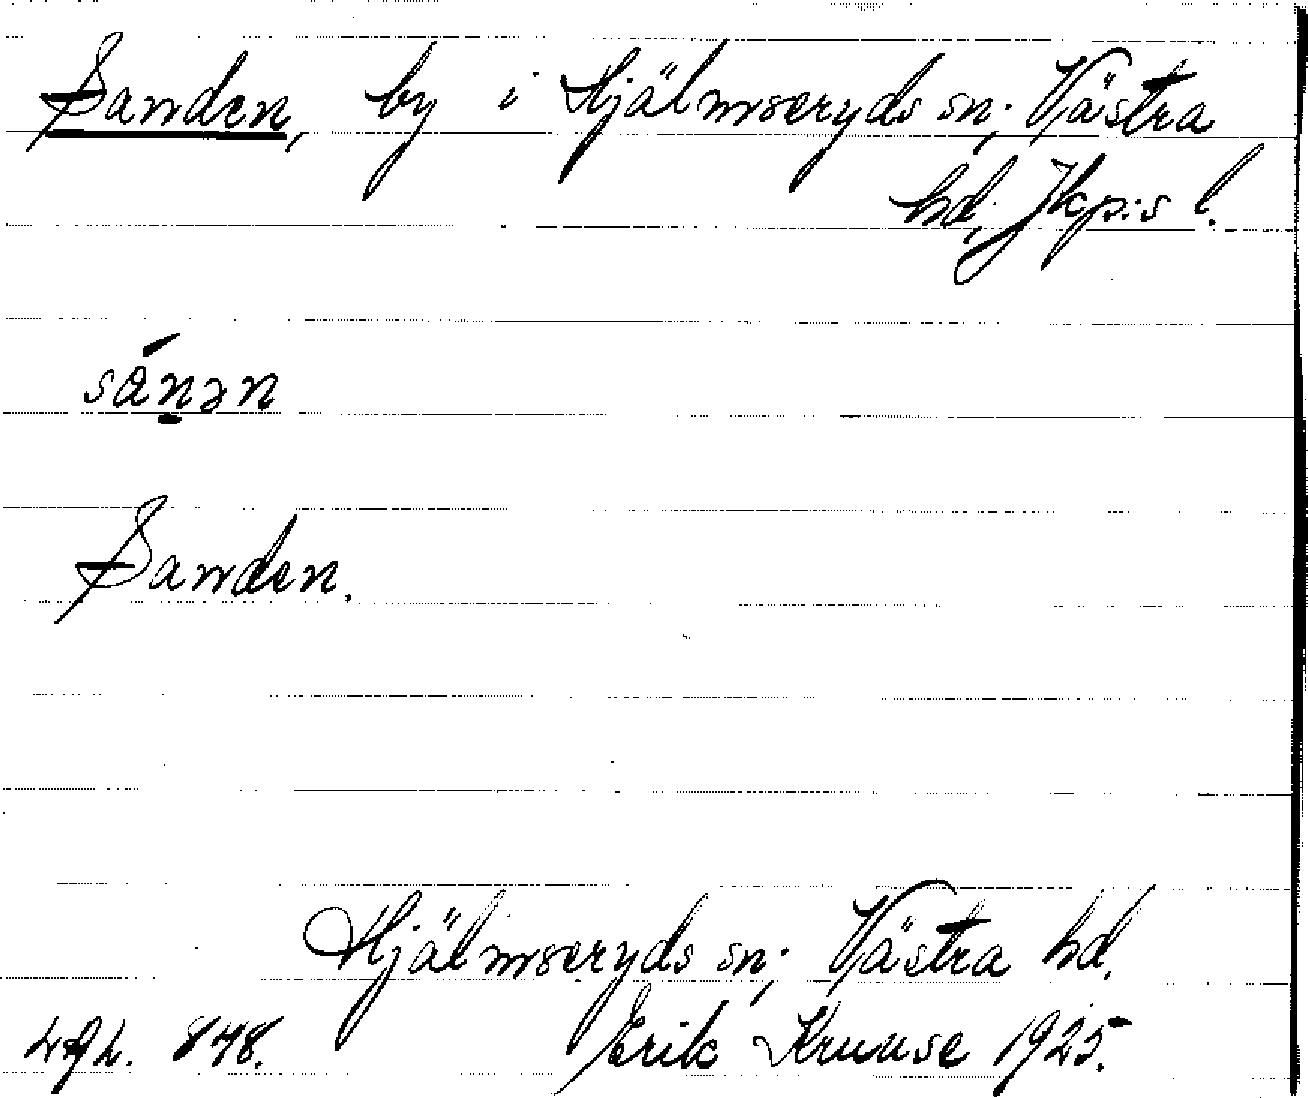 Sanden, by i Hjälmseryds sn; Västra
hd, Jkp:s l.
sánən
Sanden.
Hjälmseryds sn; Västra hd.
848. Erik Kruuse 1925.